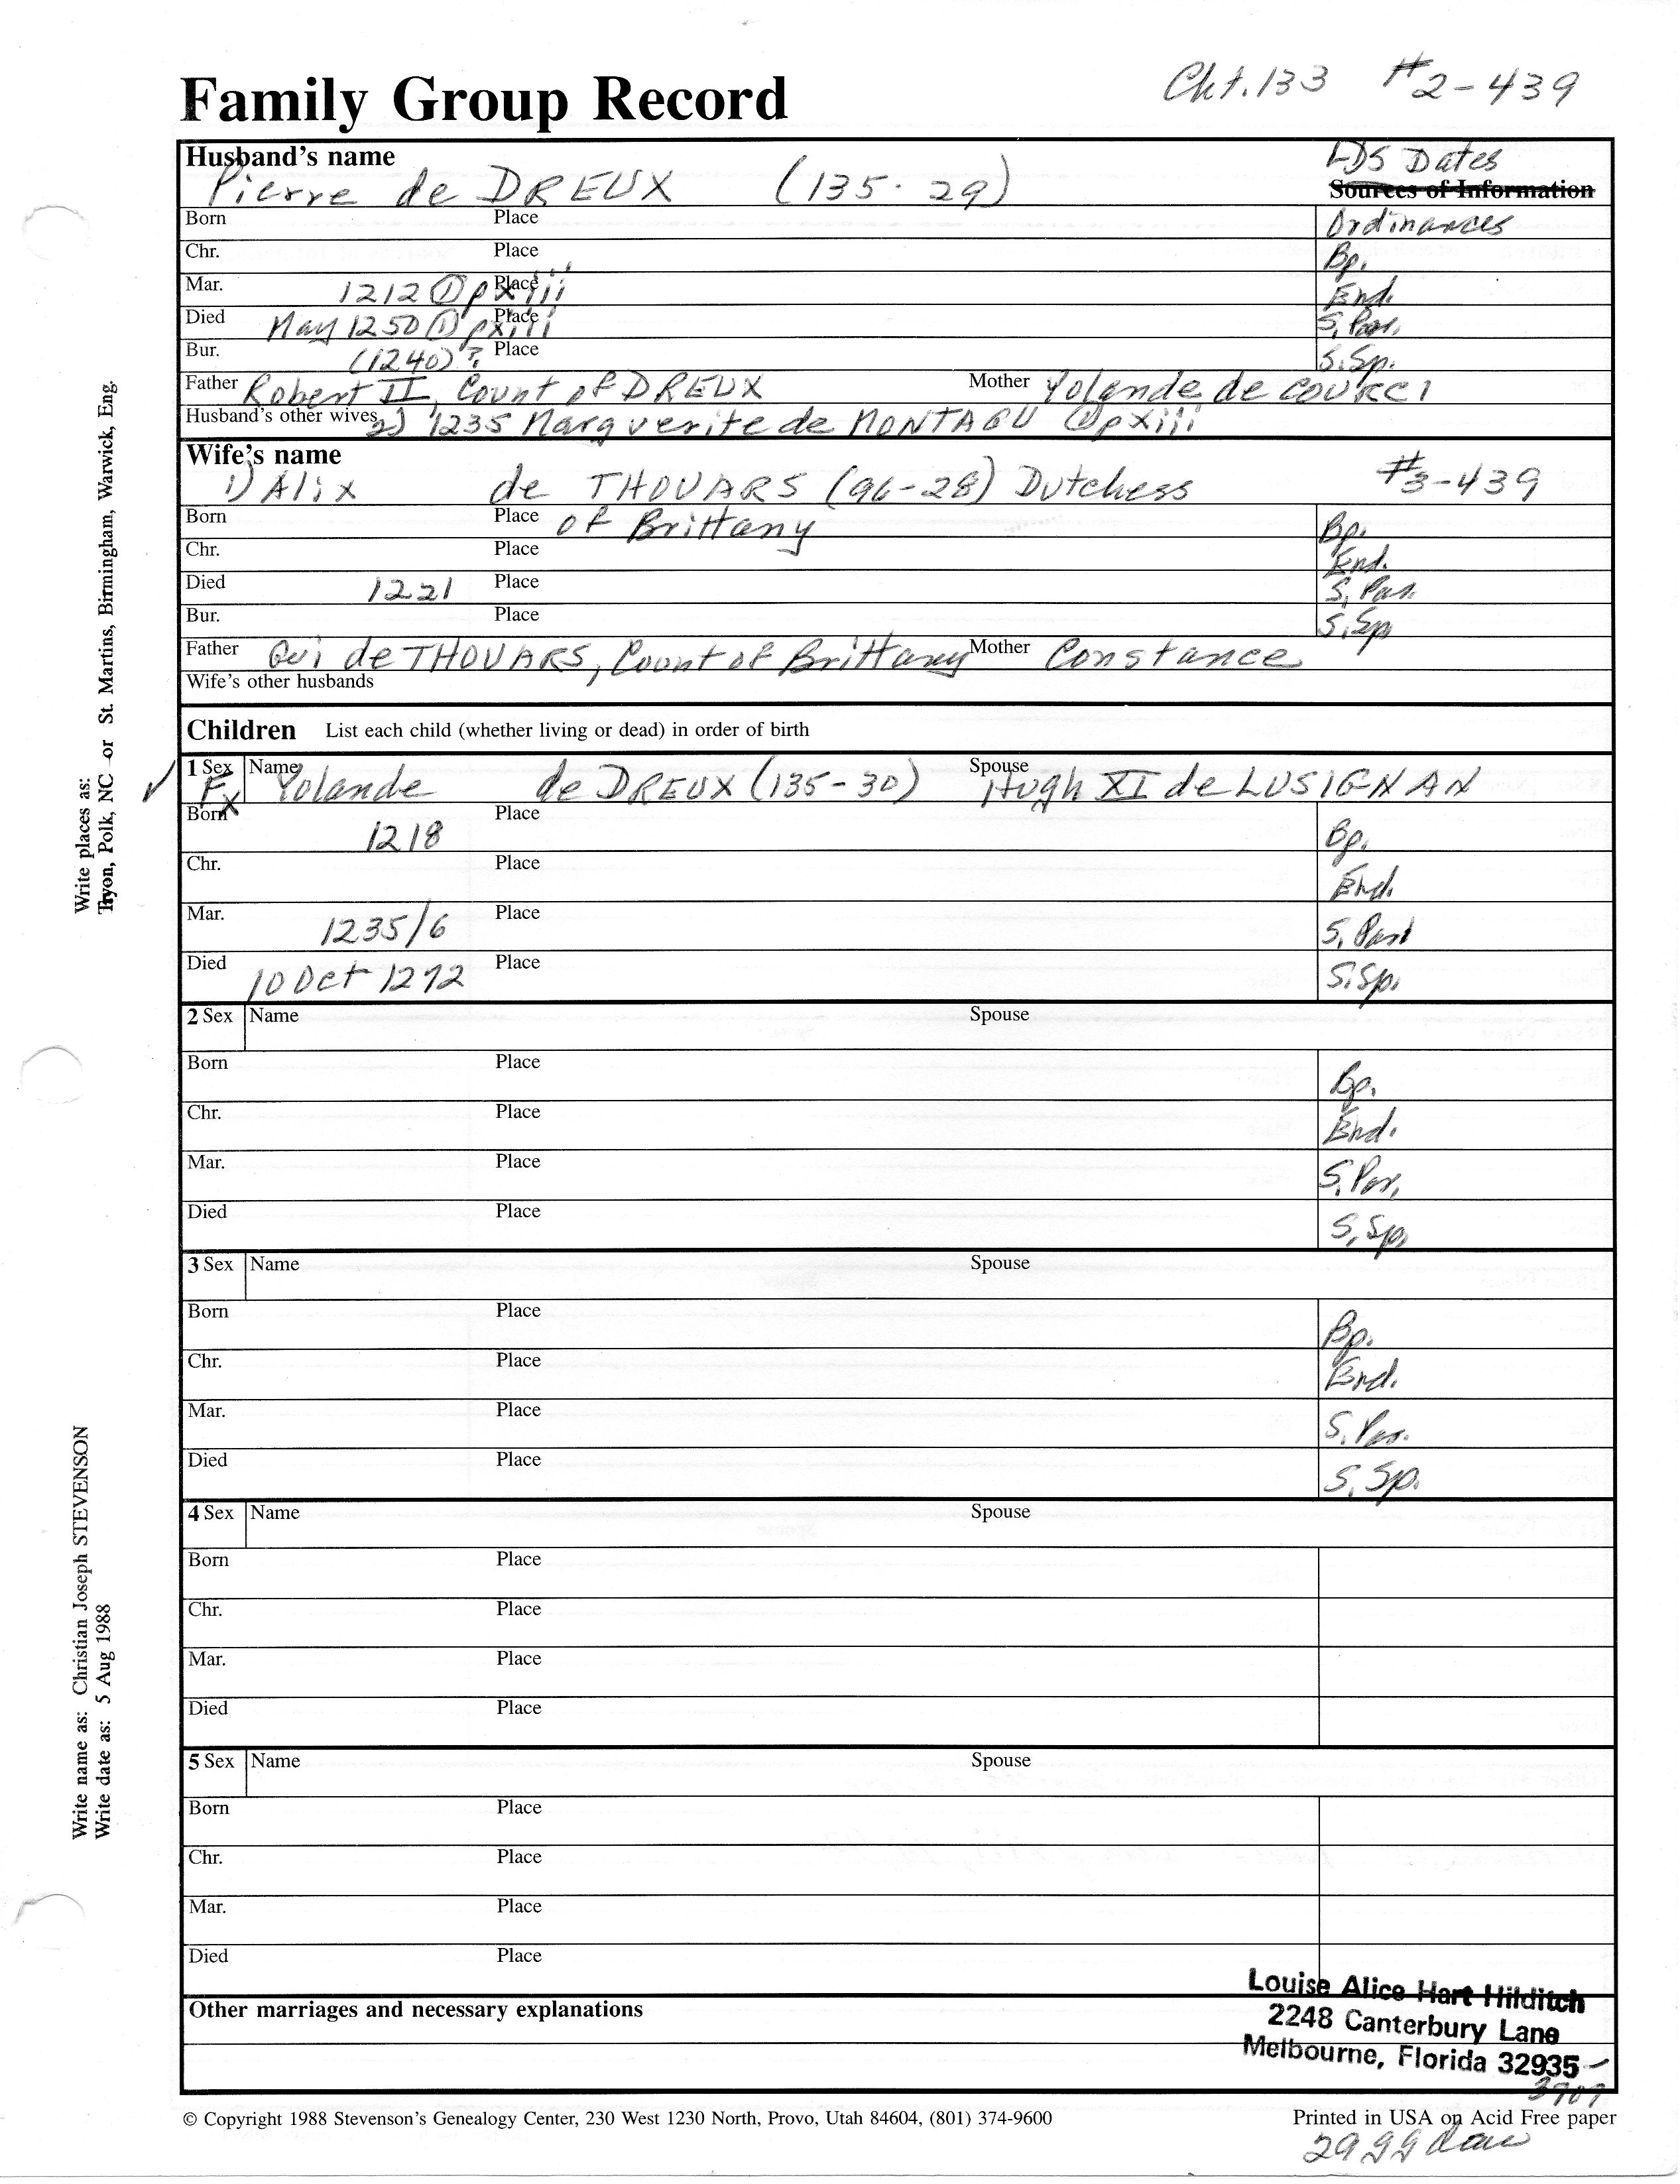 Cht. 133 #2-439
Family Group Record
Husband's name
LDS Dates
Pierre de DREUX (135-29)
Sources of Information
Born Place Ordinances
Chr. Place Bp.
Mar. 1212 ① pxiii Place End.
Died May 1250 ① pxiii Place S, Par.
Bur. (1240)? Place S.Sp.
Father Robert II, Count of DREUX Mother Yolande de COURCI
Husband's other wives 2) 1235 Marguerite de MONTAGU ① pxiii
Wife's name
1) Alix de THOUARS (96-28) Dutchess #3-439
Born Place of Brittany Bp.
Chr. Place End.
Died 1221 Place S, Par.
Bur. Place S.Sp
Father Gui de THOUARS, Count of Brittany Mother Constance
Wife's other husbands
Children List each child (whether living or dead) in order of birth
✓ 1 Sex F. Name Yolande de DREUX (135-30) Spouse Hugh XI de LUSIGNAN
X
Born 1218 Place Bp.
Chr. Place End.
Mar. 1235/6 Place S, Par
Died 10 Oct 1272 Place S.Sp.
2 Sex Name Spouse
Born Place Bp.
Chr. Place End.
Mar. Place S, Par,
Died Place S, Sp,
3 Sex Name Spouse
Born Place Bp.
Chr. Place End.
Mar. Place S, Par.
Died Place S, Sp.
4 Sex Name Spouse
Born Place
Chr. Place
Mar. Place
Died Place
5 Sex Name Spouse
Born Place
Chr. Place
Mar. Place
Died Place
Louise Alice Hart Hilditch
Other marriages and necessary explanations
2248 Canterbury Lane
Melbourne, Florida 32935-
3907
© Copyright 1988 Stevenson's Genealogy Center, 230 West 1230 North, Provo, Utah 84604, (801) 374-9600 Printed in USA on Acid Free paper
29
Write places as:
Tryon, Polk, NC -or St. Martins, Birmingham, Warwick, Eng.
Write name as: Christian Joseph STEVENSON
Write date as: 5 Aug 1988